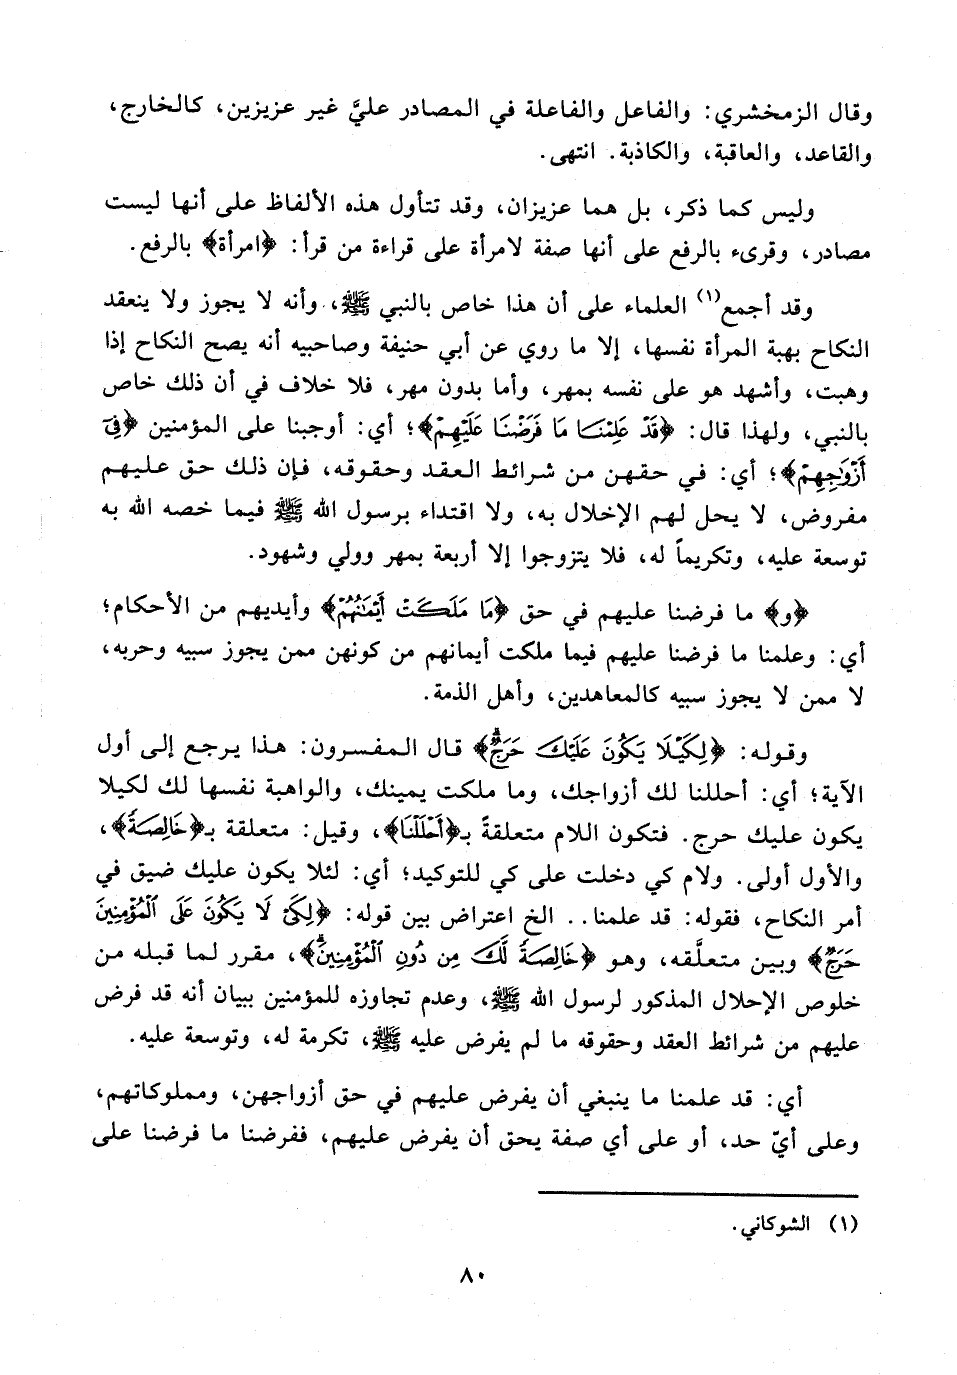 وقال الزمخشري: والفاعل والفاعلة في المصادر عليَّ غير عزيزين، كالخارج،
والقاعد، والعاقبة، والكاذبة. انتهى.
وليس كما ذكر، بل هما عزيزان، وقد تتأول هذه الألفاظ على أنها ليست
مصادر، وقرىء بالرفع على أنها صفة لامرأة على قراءة من قرأ: ﴿امرأة﴾ بالرفع.
وقد أجمع(١) العلماء على أن هذا خاص بالنبي ﷺ، وأنه لا يجوز ولا ينعقد
النكاح بهبة المرأة نفسها، إلا ما روي عن أبي حنيفة وصاحبيه أنه يصح النكاح إذا
وهبت، وأشهد هو على نفسه بمهر، وأما بدون مهر، فلا خلاف في أن ذلك خاص
بالنبي، ولهذا قال: ﴿قَدْ عَلِمْنَا مَا فَرَضْنَا عَلَيْهِمْ﴾؛ أي: أوجبنا على المؤمنين ﴿فِىٓ
أَزْوَٰجِهِمْ﴾؛ أي: في حقهن من شرائط العقد وحقوقه، فإن ذلك حق عليهم
مفروض، لا يحل لهم الإخلال به، ولا اقتداء برسول الله ﷺ فيما خصه الله به
توسعة عليه، وتكريماً له، فلا يتزوجوا إلا أربعة بمهر وولي وشهود.
﴿و﴾ ما فرضنا عليهم في حق ﴿مَا مَلَكَتْ أَيْمَٰنُهُمْ﴾ وأيديهم من الأحكام؛
أي: وعلمنا ما فرضنا عليهم فيما ملكت أيمانهم من كونهن ممن يجوز سبيه وحربه،
لا ممن لا يجوز سبيه كالمعاهدين، وأهل الذمة.
وقوله: ﴿لِكَيْلَا يَكُونَ عَلَيْكَ حَرَجٌ﴾ قال المفسرون: هذا يرجع إلى أول
الآية؛ أي: أحللنا لك أزواجك، وما ملكت يمينك، والواهبة نفسها لك لكيلا
يكون عليك حرج. فتكون اللام متعلقةً بـ﴿أَحْلَلْنَا﴾، وقيل: متعلقة بـ﴿خَالِصَةً﴾،
والأول أولى. ولام كي دخلت على كي للتوكيد؛ أي: لئلا يكون عليك ضيق في
أمر النكاح، فقوله: قد علمنا.. الخ اعتراض بين قوله: ﴿لِكَىْ لَا يَكُونَ عَلَى ٱلْمُؤْمِنِينَ
حَرَجٌ﴾ وبين متعلَّقه، وهو ﴿خَالِصَةً لَّكَ مِن دُونِ ٱلْمُؤْمِنِينَ﴾، مقرر لما قبله من
خلوص الإحلال المذكور لرسول الله ﷺ، وعدم تجاوزه للمؤمنين ببيان أنه قد فرض
عليهم من شرائط العقد وحقوقه ما لم يفرض عليه ﷺ، تكرمة له، وتوسعة عليه.
أي: قد علمنا ما ينبغي أن يفرض عليهم في حق أزواجهن، ومملوكاتهم،
وعلى أيّ حد، أو على أي صفة يحق أن يفرض عليهم، ففرضنا ما فرضنا على
(١) الشوكاني.
٨٠